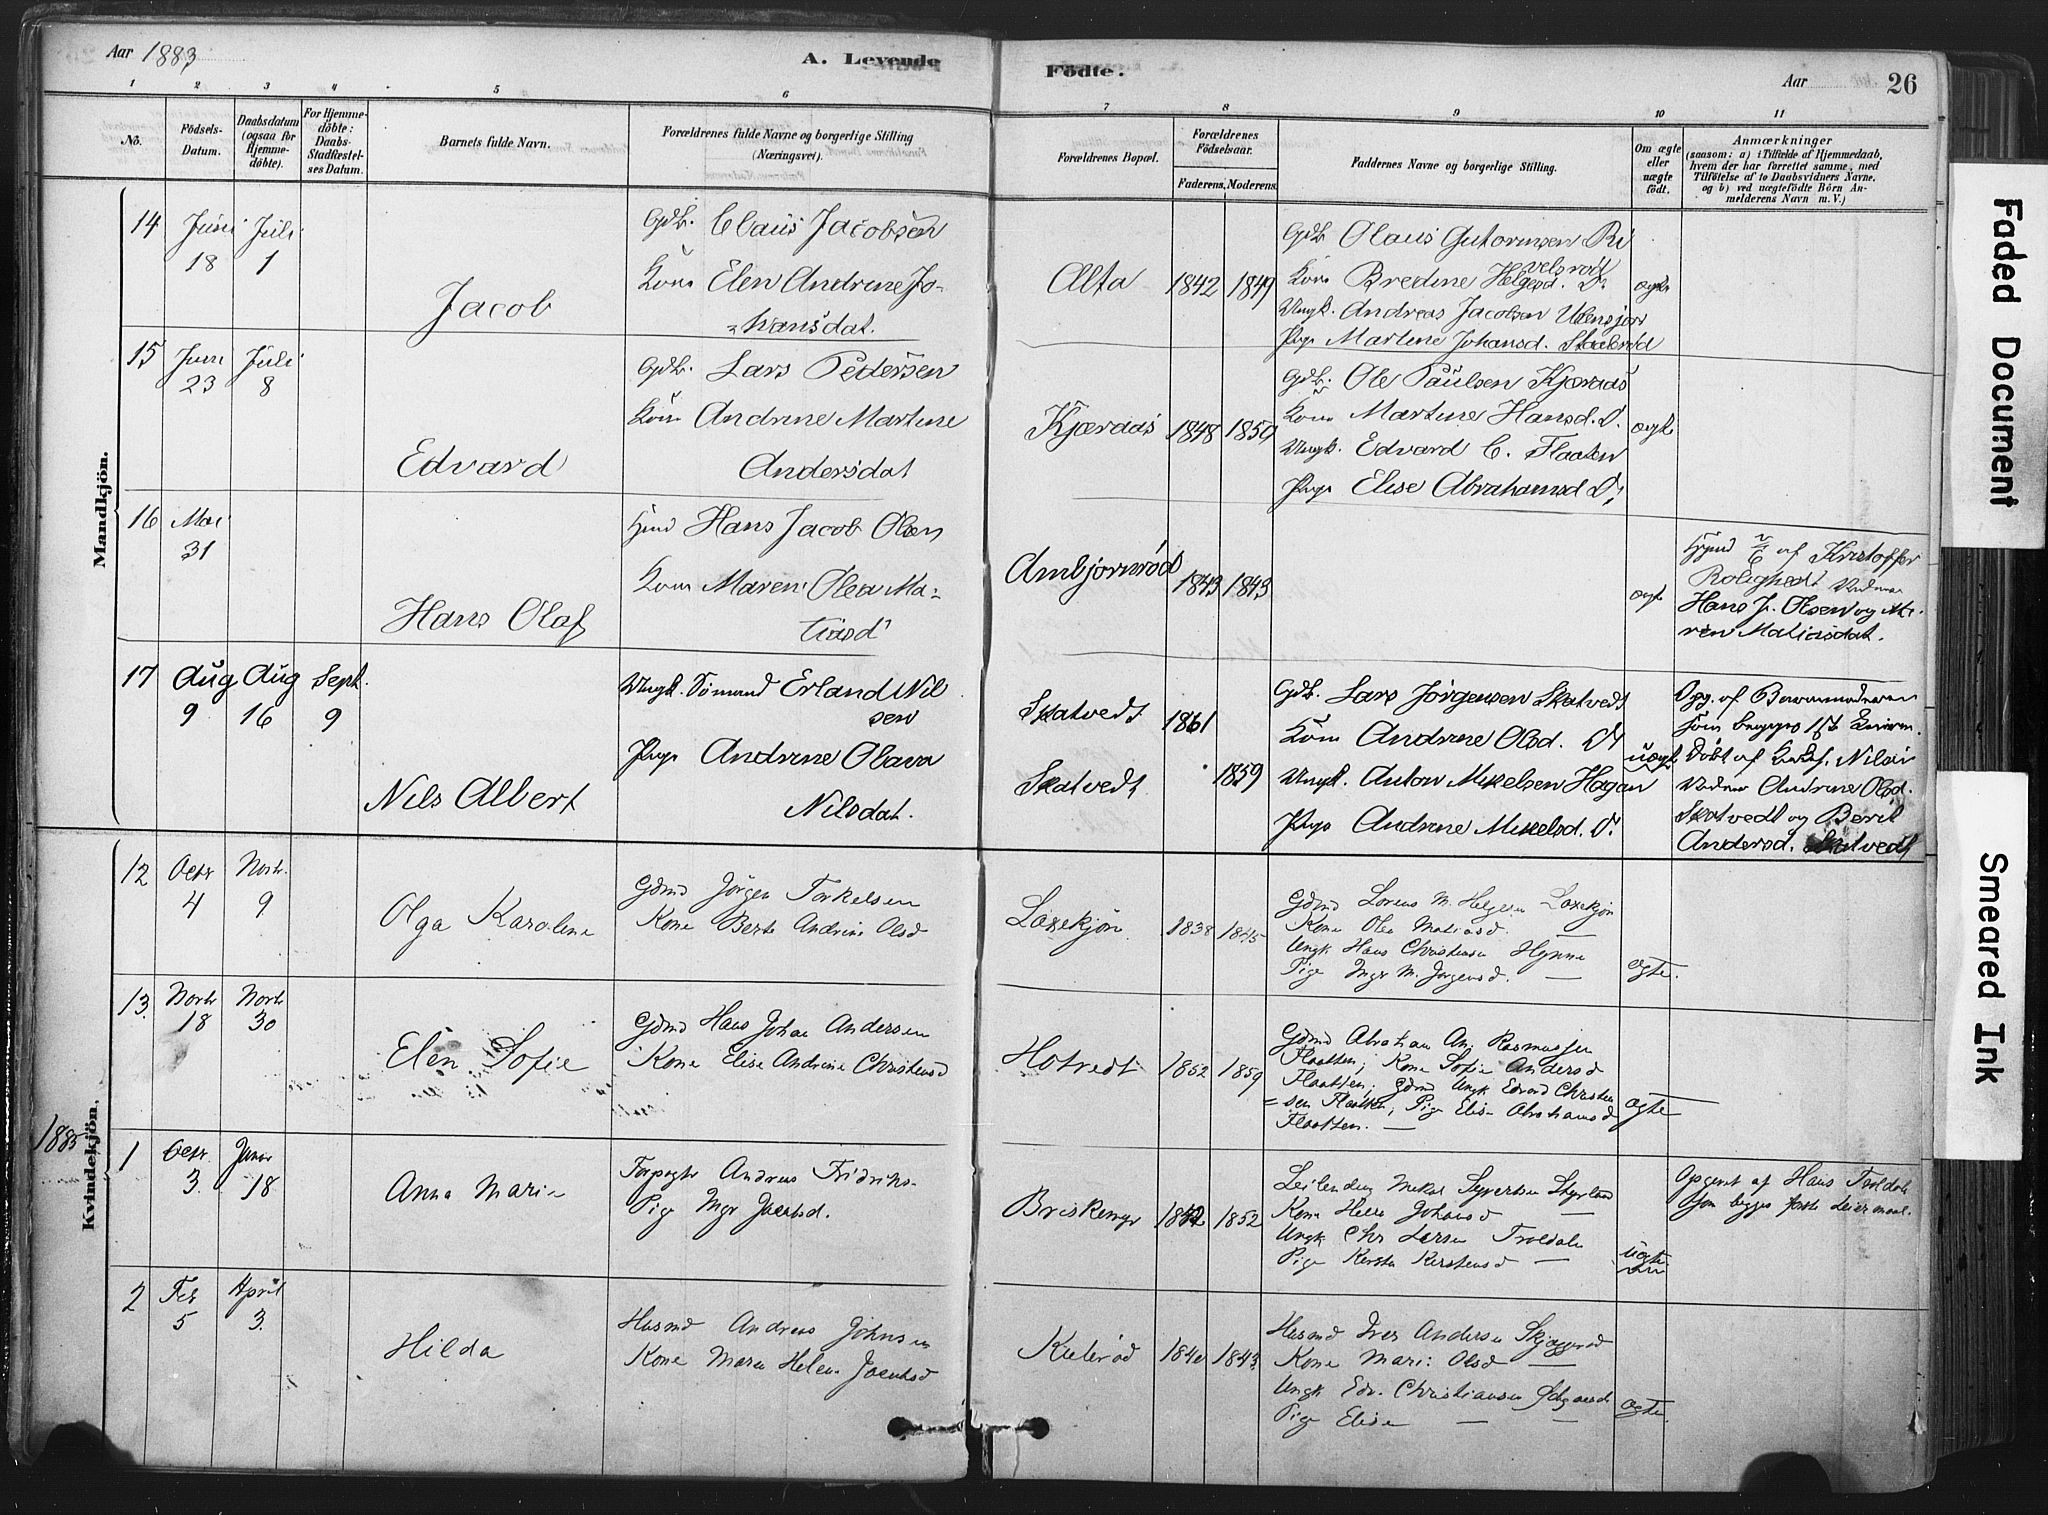 Aar 1883
A. Levende Födte.
Aar
26
1 2 3 4 5 6 7 8 9 10 11
No.
Födsels-Datum.
Daabsdatum (ogsaa for Hjemmedöbte).
For Hjemmedöbte: Daabs-Stadfæstelses Datum.
Barnets fulde Navn.
Forældrenes fulde Navne og borgerlige Stilling (Næringsvei).
Forældrenes Bopæl.
Forældrenes Födselsaar.
Faderens. Moderens.
Faddernes Navne og borgerlige Stilling.
Om ægte eller uægte födt.
Anmærkninger
(saasom: a) i Tilfælde af Hjemmedaab, hvem der har forrettet samme, med Tilföielse af to Daabsvidners Navne, og b) ved uægtefödte Börn Anmelderens Navn m. V.)
Mandkjön.
14 Juni 18 Juli 1
Jacob
Gdb. Claus Jacobsen
Kone Elen Andrine Jo-
hansdat.
Alta 1842 1849
Gdb Olaus Gutormsen Ri
velsrød
Kone Bredine Helgesd. D.
Ungk. Andreas Jacobsen
Pige Martine Johansd.
ægte
15 Juni 23 Juli 8
Edvard
Gdb. Lars Pedersen
Kone Andrine Martine
Andersdat
Kjæraas 1848 1850
Gdb. Ole Paulsen Kjæraas
Kone Martine Hansd. D.
Ungk. Edvard C. Flaaten
Pige Elise Abrahamsd D.
ægte
16 Mai 31
Hans Olaf
Hans Jacob Olsen
Kone Maren Olea Ma-
tiasd
Ambjørnrød 1843 1843
ægte
af Kristoffer
Rolighedt
Hans J. Olsen og Ma-
ren Matiasdat.
17 Aug 9 Aug 16 Sept. 9
Nils Albert
Ungk. Sømand Erland Nil
sen
Pige Andrine Olava
Nilsdat.
Skatvedt 1861
Skatvedt 1859
Gdb. Lars Jørgensen Skatvedt
Kone Andrine Olsd. D.
Ungk. Anton Mikelsen Hagan
Pige Andrine Mikelsd. D.
uægte
Opg. af Barnemoderen
som begges 1ste
Døbt af
Andrine Olsd.
Skatvedt og Berit
Andersd. Skatvedt
Kvindekjön.
12 Octr 4 Novbr. 9
Olga Karoline
Gdmd Jörgen Torkelsen
Kone Berte Andrine Olsd
Laxekjön 1838 1845
Gdmd Lorens M. Helgesen Laxekjön
Kone Olea Matiasd.
Ungk Hans Christensen
Pige M. Jørgensd. —
ægte.
13. Novbr 18 Novbr 30
Elen Sofie
Gdmd Hans Johan Andersen
Kone Elise Andrine Christensd
Hotvedt 1852 1859
Gdmd Abraham An. Rasmussen
Flaatten; Kone Sofie Andersd
Flaatten; Gdmd Ungk Edvard Christen
=sen Flaatten; Pige Elise Abrahamsd
Flaatten. —
ægte
1885
1 Octr 3. Januar 18
Anna Marie
Andreas Fridriks.
Pige Jacobsd.
Briskemyr 1842 1852
Kone Johansd —
Ungk Chr Larsen Troldalen
Pige —
uægte
Opgivet af Hans Troldalen
som begges første Leiermaal.
2 Feb 5 April 3.
Hilda
Husmd Andreas Johnsen
Kone Maren Helene Jacobsd
Kulerød 1840 1843.
Husmd Iver Andersen
Kone Mari Olsd —
Ungk Edv. Christiansen
Pige Elise — —
ægte.
Faded Document
Smeared Ink